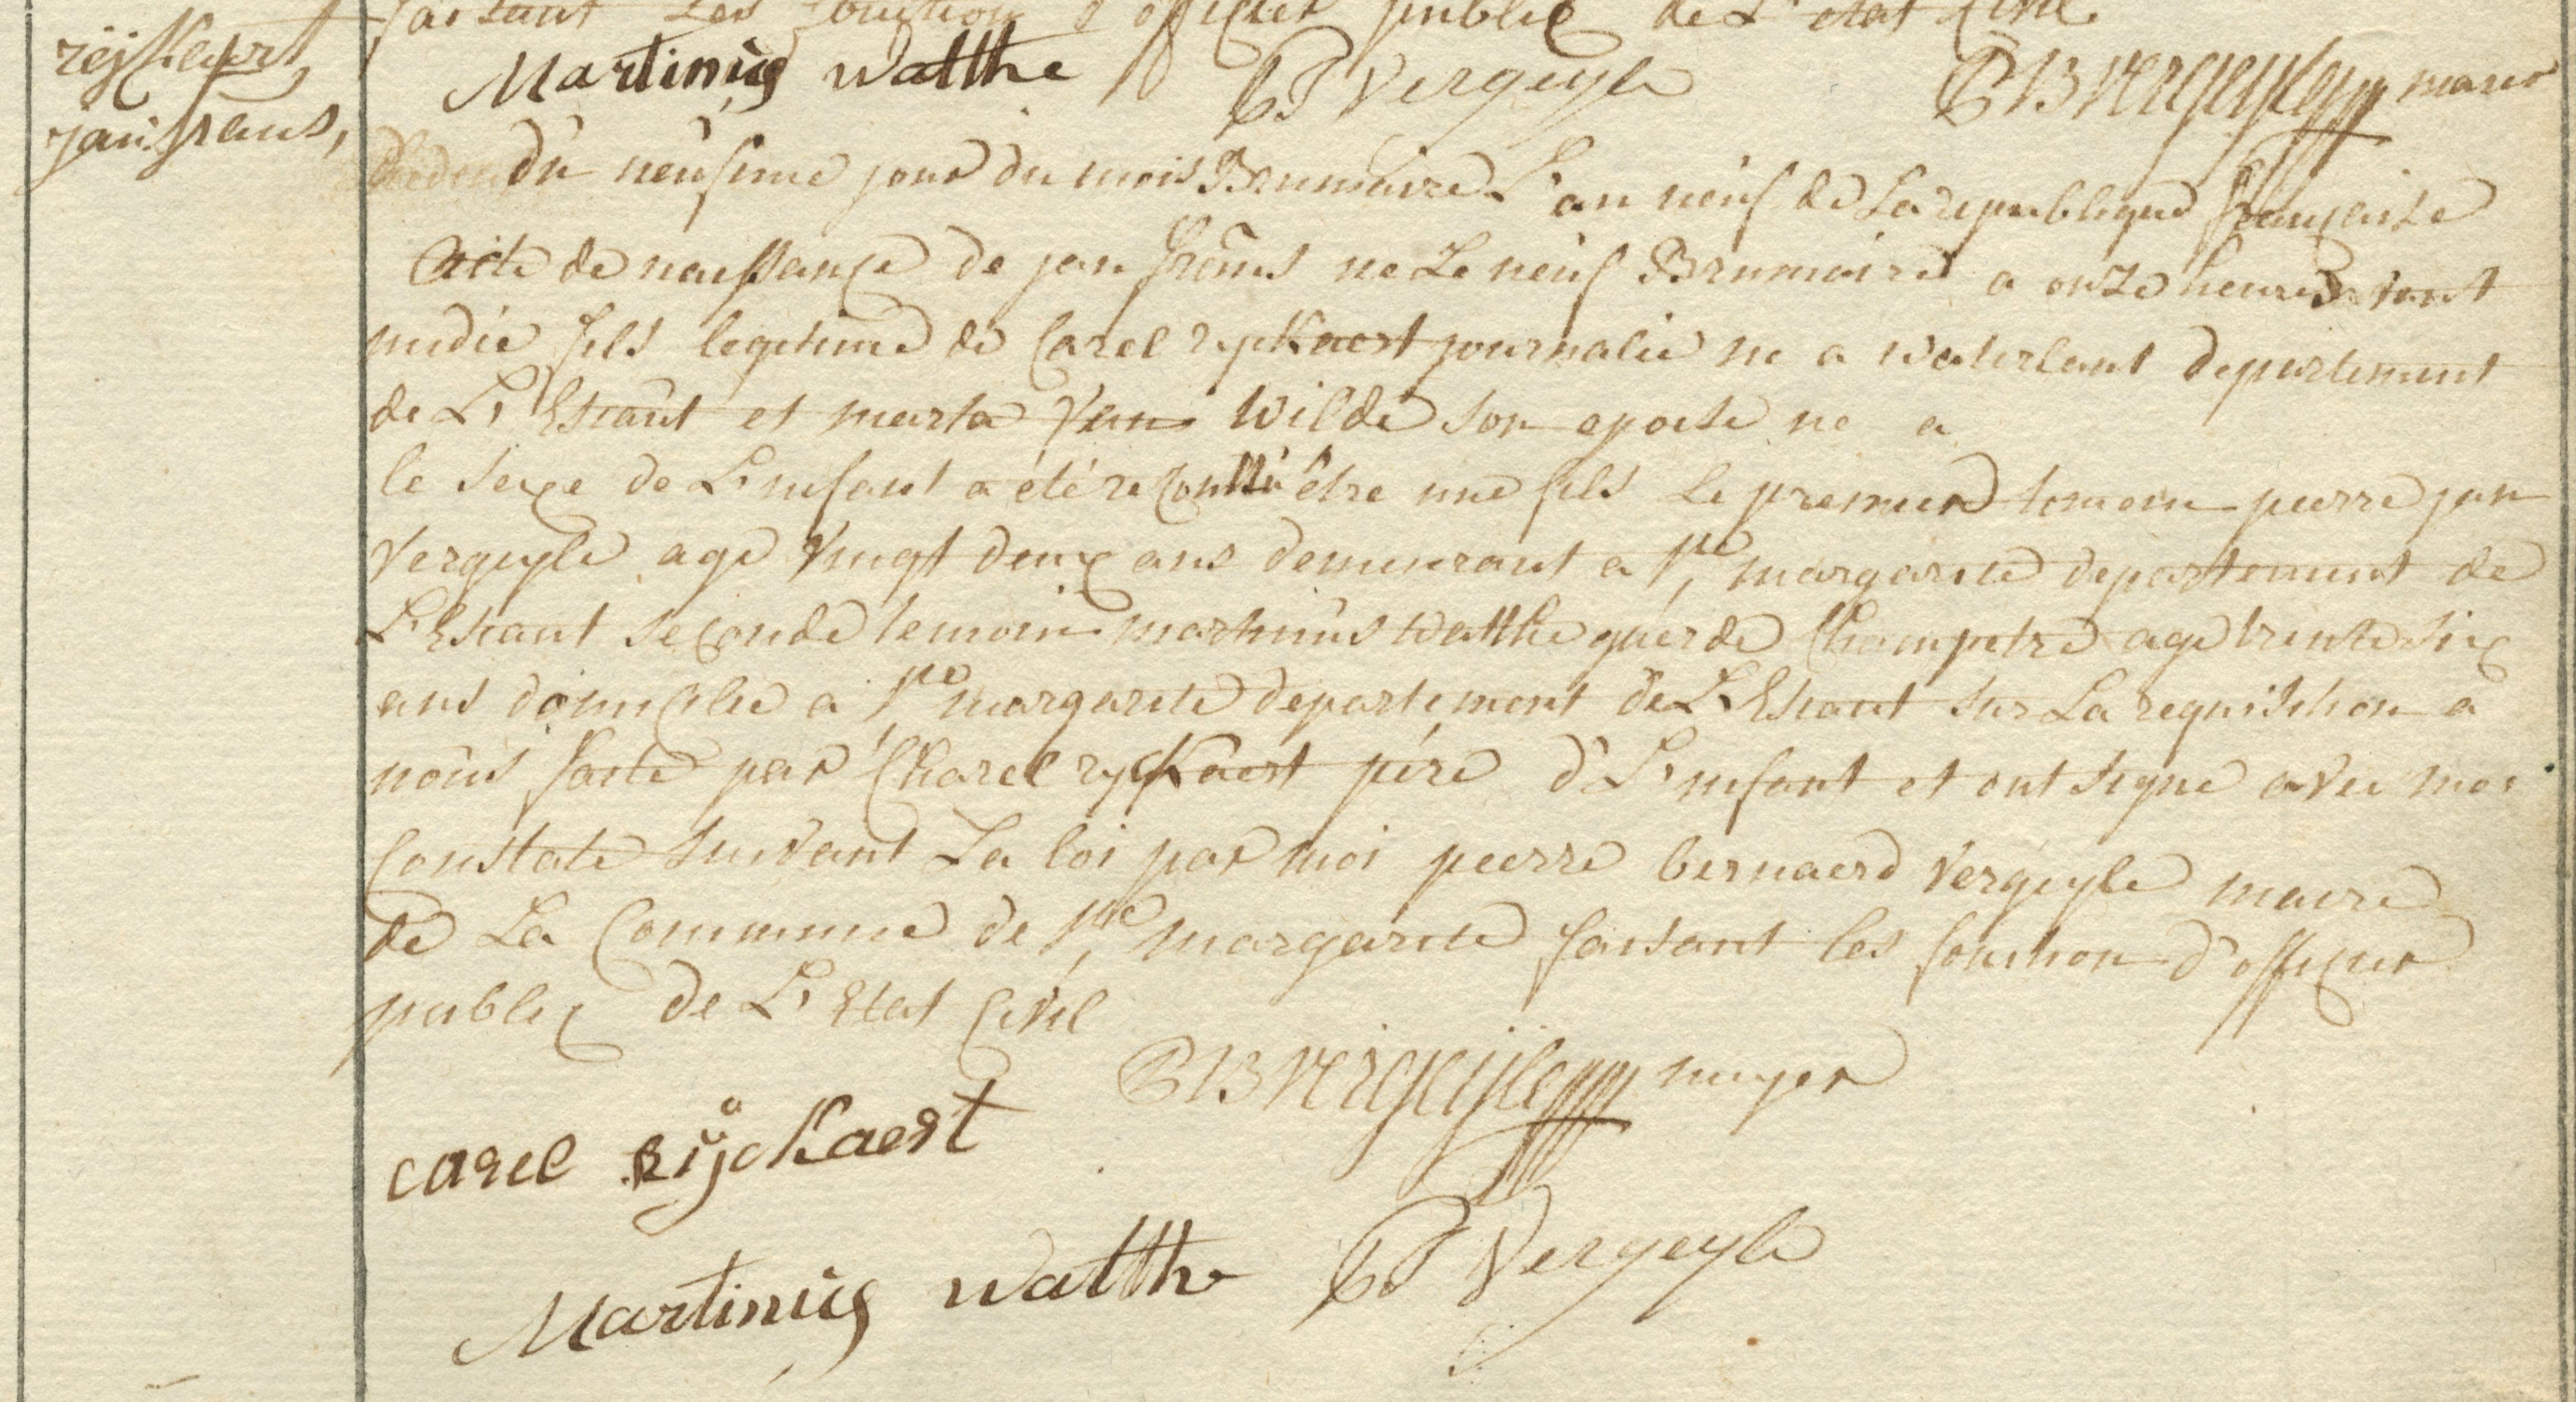 faisant Les fonction d'officier public de L'etat Civil.
rÿckaert
Martinus Watthe PJ Vergeyle PB vergeÿle maire
jan frans,
du neufime jour du mois Brumaire L'an neuf de La republique française
Acte de naissance de jan frans ne Le neuf Brumaire a onze heures vant
midie fils legitime de Carel ryckaert journalie ne a waterlant departement
de L'Escaut et marta Van Wilde son epoese ne a
le sexe de L'enfant a été reconnu être une fils le premier temoin pierre jan
Vergeyle age Vingt deux ans demeurant a Ste margarite departement de
L'Escaut seconde temoin martinus watthe guerde Champetre age trente six
ans domicilie a Ste margarite departement de L'Escaut sur La requisition a
nous faite par Charel ryckaert pére d L'enfant et ont signe avec moi
Constate suivant La loi par moi pierre bernaerd Vergeyle maire
de La Commune de Ste margarite faisant les fonction d'officier
public de L'Etat Civil
PB vergeÿle mayer
carel rÿckaert
Martinus Watthe PJ Vergeyle